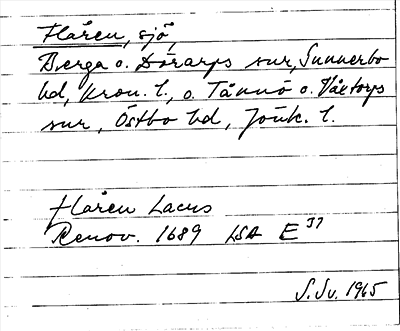 Flåren, sjö,
Berga o. Dörarps snr, Sunnerbo
hd, Kron. l., o. Tånnö o. Våxtorps
snr, Östbo hd, Jönk. l.
Flåren Lacus
Renov. 1689 LSA E³⁷
S.Sv. 1965